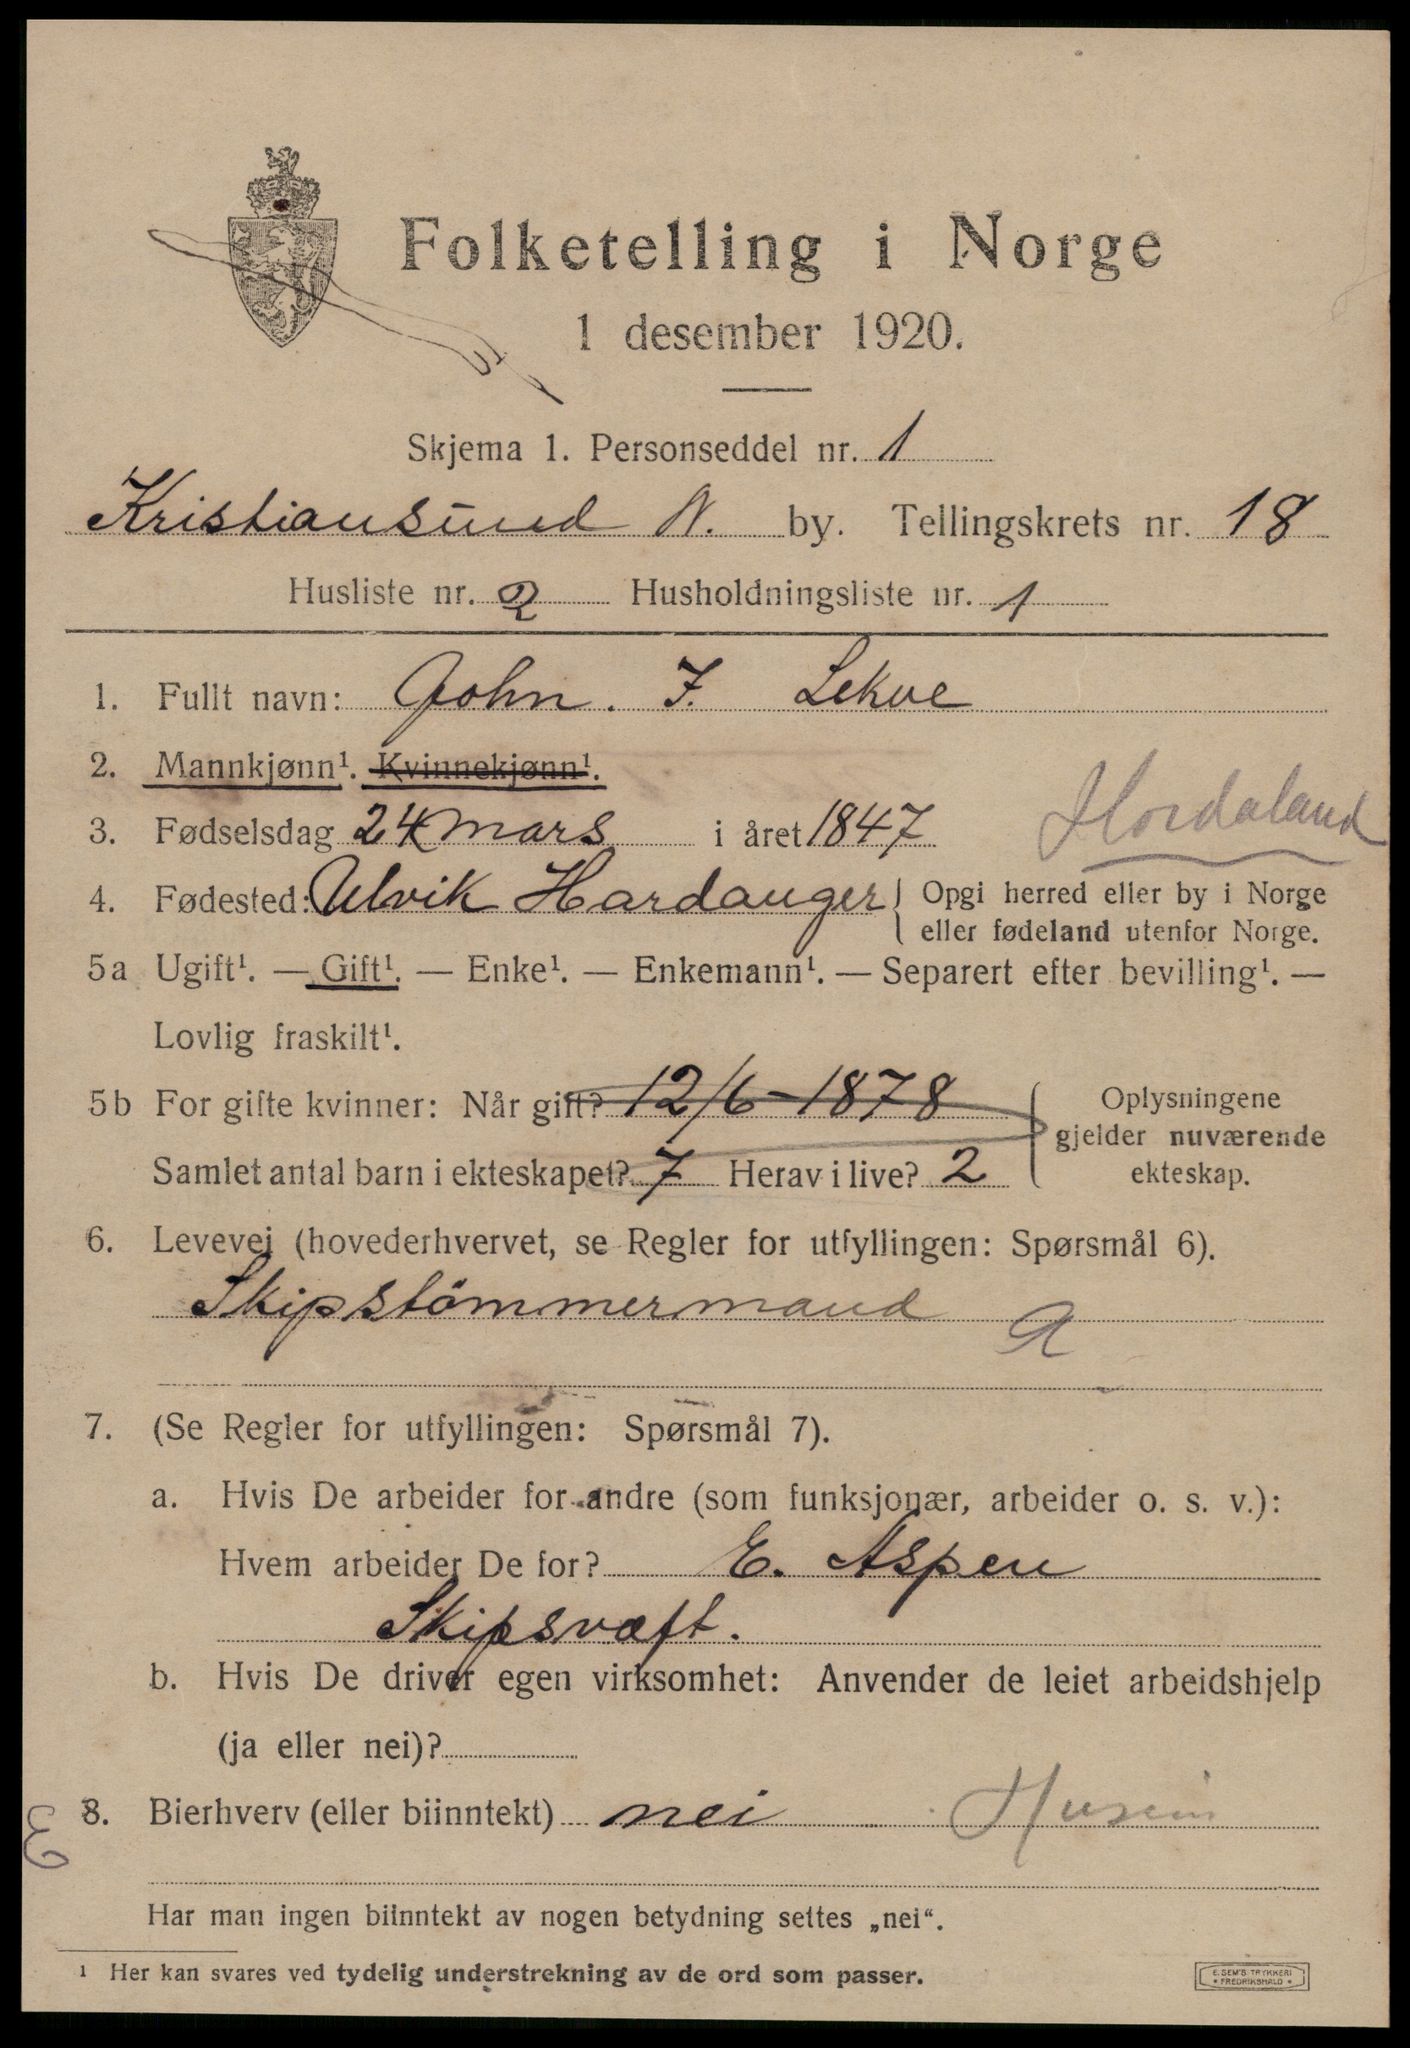 Folketelling i Norge
1 desember 1920.
Skjema 1. Personseddel nr. 1
Kristiansund N. by. Tellingskrets nr. 18
Husliste nr. 2 Husholdningsliste nr. 1
1. Fullt navn: John. J. Lekve
2. Mannkjønn¹. Kvinnekjønn¹.
Hordaland
3. Fødselsdag 24 mars i året 1847
4. Fødested: Ulvik Hardanger { Opgi herred eller by i Norge
eller fødeland utenfor Norge.
5a Ugift¹. — Gift¹. — Enke¹. — Enkemann¹. — Separert efter bevilling¹. —
Lovlig fraskilt¹.
5b For gifte kvinner: Når gift? 12/6-1878
Samlet antal barn i ekteskapet? 7 Herav i live? 2
Oplysningene
gjelder nuværende
ekteskap.
6. Levevei (hovederhvervet, se Regler for utfyllingen: Spørsmål 6).
Skipstömmermand A
7. (Se Regler for utfyllingen: Spørsmål 7).
a. Hvis De arbeider for andre (som funksjonær, arbeider o. s. v.):
Hvem arbeider De for? E. Aspen
Skipsvæft.
b. Hvis De driver egen virksomhet: Anvender de leiet arbeidshjelp
(ja eller nei)?
8. Bierhverv (eller biinntekt) nei
Har man ingen biinntekt av nogen betydning settes „nei“.
¹ Her kan svares ved tydelig understrekning av de ord som passer.
E. SEM'S TRYKKERI
* FREDRIKSHALD *